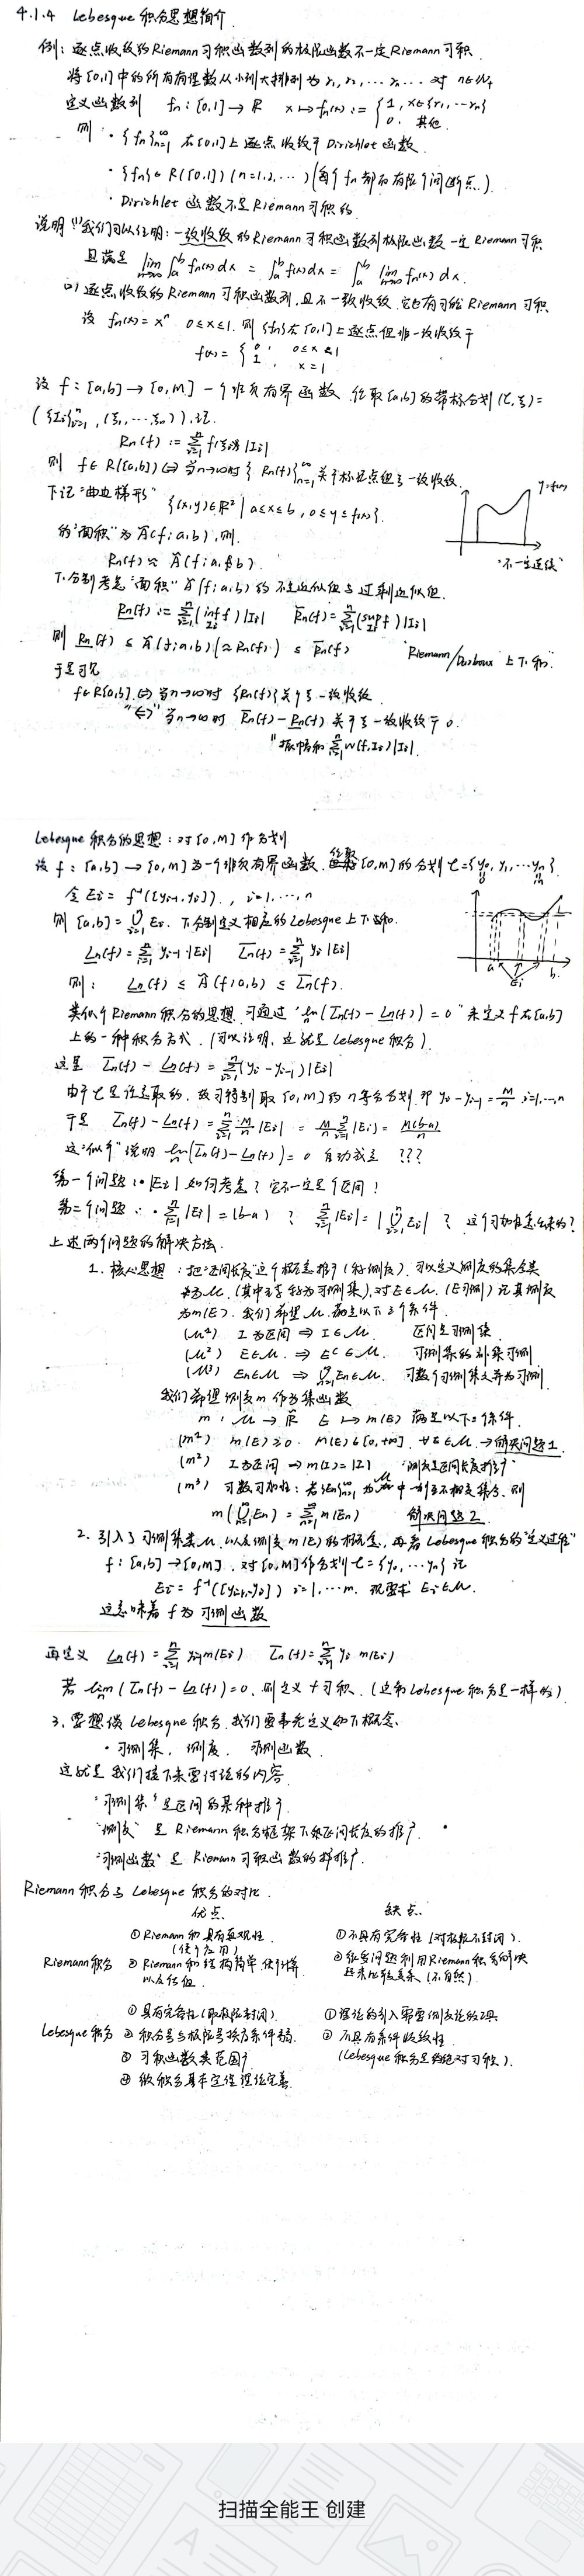 4.1.4 Lebesgue 积分思想简介
例：逐点收敛的Riemann可积函数列的极限函数不一定Riemann可积.
将[0,1]中的所有有理数从小到大排列为 r₁, r₂, … rₙ … 对 n∈ℕ₊
定义函数列 fₙ : [0,1] → ℝ x ↦ fₙ(x) := { 1, x∈{r₁, … rₙ}
0, 其他.
则 · {fₙ}ₙ₌₁^∞ 在[0,1]上逐点收敛于Dirichlet函数.
· {fₙ}∈ R([0,1]) (n=1,2,…) (每个fₙ都有有限个间断点.)
· Dirichlet 函数不是Riemann可积的.
说明 (1) 我们可以证明: 一致收敛的Riemann可积函数列极限函数一定Riemann可积
且满足 lim_{n→∞} ∫ₐᵇ fₙ(x) dx = ∫ₐᵇ f(x) dx = ∫ₐᵇ lim_{n→∞} fₙ(x) dx.
(2) 逐点收敛的Riemann可积函数列,且不一致收敛,它也有可能Riemann可积
设 fₙ(x) = xⁿ 0≤x≤1. 则 {fₙ}在[0,1]上逐点但非一致收敛于
f(x) = { 0, 0≤x<1
1, x=1
设 f : [a,b] → [0,M] 一个非负有界函数. 任取[a,b]的带标分划(τ,ξ)=
({Iᵢ}ᵢ₌₁ⁿ, (ξ₁, … ξₙ)), 记.
Rₙ(f) := Σᵢ₌₁ⁿ f(ξᵢ) |Iᵢ|
则 f∈R([a,b]) ⇔ 当n→∞时 {Rₙ(f)}ₙ₌₁^∞ 关于标记点组ξ一致收敛.
下记"曲边梯形" {(x,y)∈ℝ² | a≤x≤b, 0≤y≤f(x)}.
y=f(x)
的"面积"为 Ã(f;a,b),则.
Rₙ(f) ≈ Ã(f;a,b).
"不一定连续"
下分别考虑"面积" Ã(f;a,b) 的不足近似值与过剩近似值.
R̲ₙ(f) := Σᵢ₌₁ⁿ (inf f) |Iᵢ| R̄ₙ(f) = Σᵢ₌₁ⁿ (sup f) |Iᵢ|
则 R̲ₙ(f) ≤ Ã(f;a,b) (≈Rₙ(f)) ≤ R̄ₙ(f) "Riemann/Darboux 上下和".
于是可见
f∈R[a,b] ⇔ 当n→∞时 {Rₙ(f)}关于ξ一致收敛
"⇔" 当n→∞时 R̄ₙ(f) - R̲ₙ(f) 关于ξ一致收敛于0.
"振幅和 Σᵢ₌₁ⁿ w(f,Iᵢ)|Iᵢ|.
Lebesgue 积分的思想: 对[0,M]作分划
设 f : [a,b] → [0,M] 为一个非负有界函数. [0,M]的分划 τ={y₀, y₁, … yₙ}.
0 M
令 Eᵢ = f⁻¹([yᵢ₋₁, yᵢ)), i=1,…,n
则 [a,b] = ⋃ᵢ₌₁ⁿ Eᵢ. 下分别定义相应的Lebesgue上下和.
L̲ₙ(f) = Σᵢ₌₁ⁿ yᵢ₋₁ |Eᵢ| L̄ₙ(f) = Σᵢ₌₁ⁿ yᵢ |Eᵢ|
a Eᵢ b
则: L̲ₙ(f) ≤ Ã(f;a,b) ≤ L̄ₙ(f).
类似于Riemann积分的思想,可通过 "lim (L̄ₙ(f) - L̲ₙ(f)) = 0" 来定义f在[a,b]
上的一种积分方式. (可以证明,这就是Lebesgue积分).
这里 L̄ₙ(f) - L̲ₙ(f) = Σᵢ₌₁ⁿ (yᵢ - yᵢ₋₁)|Eᵢ|
由于τ是任意取的,故可特别取[0,M]的n等分分划,即 yᵢ - yᵢ₋₁ = M/n i=1,…,n
于是 L̄ₙ(f) - L̲ₙ(f) = Σᵢ₌₁ⁿ M/n |Eᵢ| = M/n Σᵢ₌₁ⁿ |Eᵢ| = M(b-a)/n
这"似乎"说明 lim (L̄ₙ(f) - L̲ₙ(f)) = 0 自动成立 ???
第一个问题: |Eᵢ| 如何考虑? 它不一定是个区间!
第二个问题: Σᵢ₌₁ⁿ |Eᵢ| = (b-a) ? Σᵢ₌₁ⁿ |Eᵢ| = |⋃ᵢ₌₁ⁿ Eᵢ| ? 这个可加性怎么来的?
上述两个问题的解决方法.
1. 核心思想: 把"区间长度"这个概念推广(称测度). 可以定义测度的集合类
为 ℳ. (其中元素称为可测集). 对E∈ℳ. (E可测) 记其测度
为m(E). 我们希望 ℳ 满足以下三个条件.
(M¹) I为区间 ⇒ I∈ℳ. 区间是可测集.
(M²) E∈ℳ. ⇒ Eᶜ∈ℳ. 可测集的补集可测
(M³) Eₙ∈ℳ ⇒ ⋃ₙ₌₁^∞ Eₙ∈ℳ. 可数个可测集之并为可测.
我们希望测度m作为集函数
m : ℳ → ℝ̄ E ↦ m(E) 满足以下三条件.
(m¹) m(E)≥0. m(E)∈[0,+∞], ∀E∈ℳ. → 解决问题1.
(m²) I为区间 → m(I) = |I| "测度是区间长度推广"
(m³) 可数可加性: 若{Eₙ}ₙ₌₁^∞ 为ℳ中一列互不相交集合,则
m(⋃ₙ₌₁^∞ Eₙ) = Σₙ₌₁^∞ m(Eₙ) 解决问题2.
2. 引入了可测集类ℳ, 以及测度m(E)的概念, 再看Lebesgue积分的"定义过程"
f : [a,b] → [0,M], 对[0,M]作分划 τ={y₀, … yₙ} 记
Eᵢ = f⁻¹([yᵢ₋₁, yᵢ)) i=1,…n. 现要求 Eᵢ∈ℳ.
这意味着 f 为可测函数
再定义 L̲ₙ(f) = Σᵢ₌₁ⁿ yᵢ₋₁ m(Eᵢ) L̄ₙ(f) = Σᵢ₌₁ⁿ yᵢ m(Eᵢ)
若 lim (L̄ₙ(f) - L̲ₙ(f)) = 0. 则定义f可积. (这和Lebesgue积分是一样的)
3. 要想谈Lebesgue积分,我们要事先定义如下概念.
· 可测集, 测度, 可测函数
这就是我们接下来要讨论的内容.
"可测集"是区间的某种推广.
"测度"是Riemann积分框架下求区间长度的推广.
"可测函数"是Riemann可积函数的推广.
Riemann积分与Lebesgue积分的对比.
优点. 缺点.
Riemann积分
① Riemann和具有直观性. (便于应用)
② Riemann和结构简单,便计算以及估值.
① 不具有完备性 (对极限不封闭).
② 很多问题利用Riemann积分解决起来比较复杂 (不自然)
Lebesgue积分
① 具有完备性 (取极限封闭).
② 积分号与极限号换序条件弱.
③ 可积函数类范围广
④ 微积分基本定理理论完善.
① 理论的引入需要测度论的工具
② 不具有条件收敛性.
(Lebesgue积分是绝对可积).
扫描全能王 创建